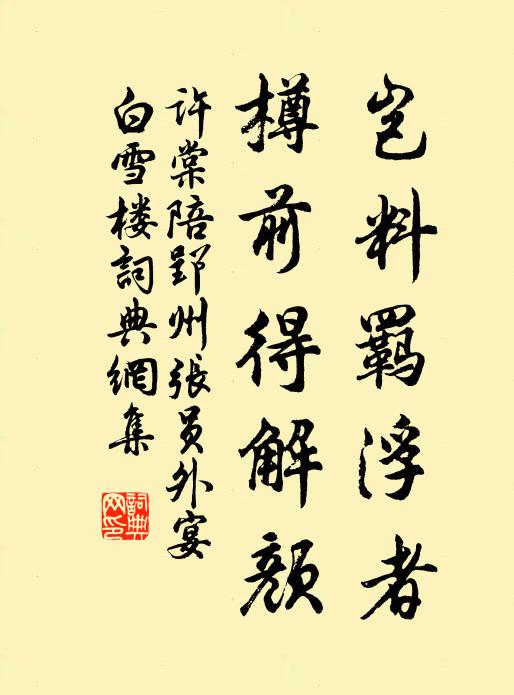 岂料羁浮者
樽前得解颜
许棠陪郢州张员外宴
白雪楼詞典網集
詞典
网印